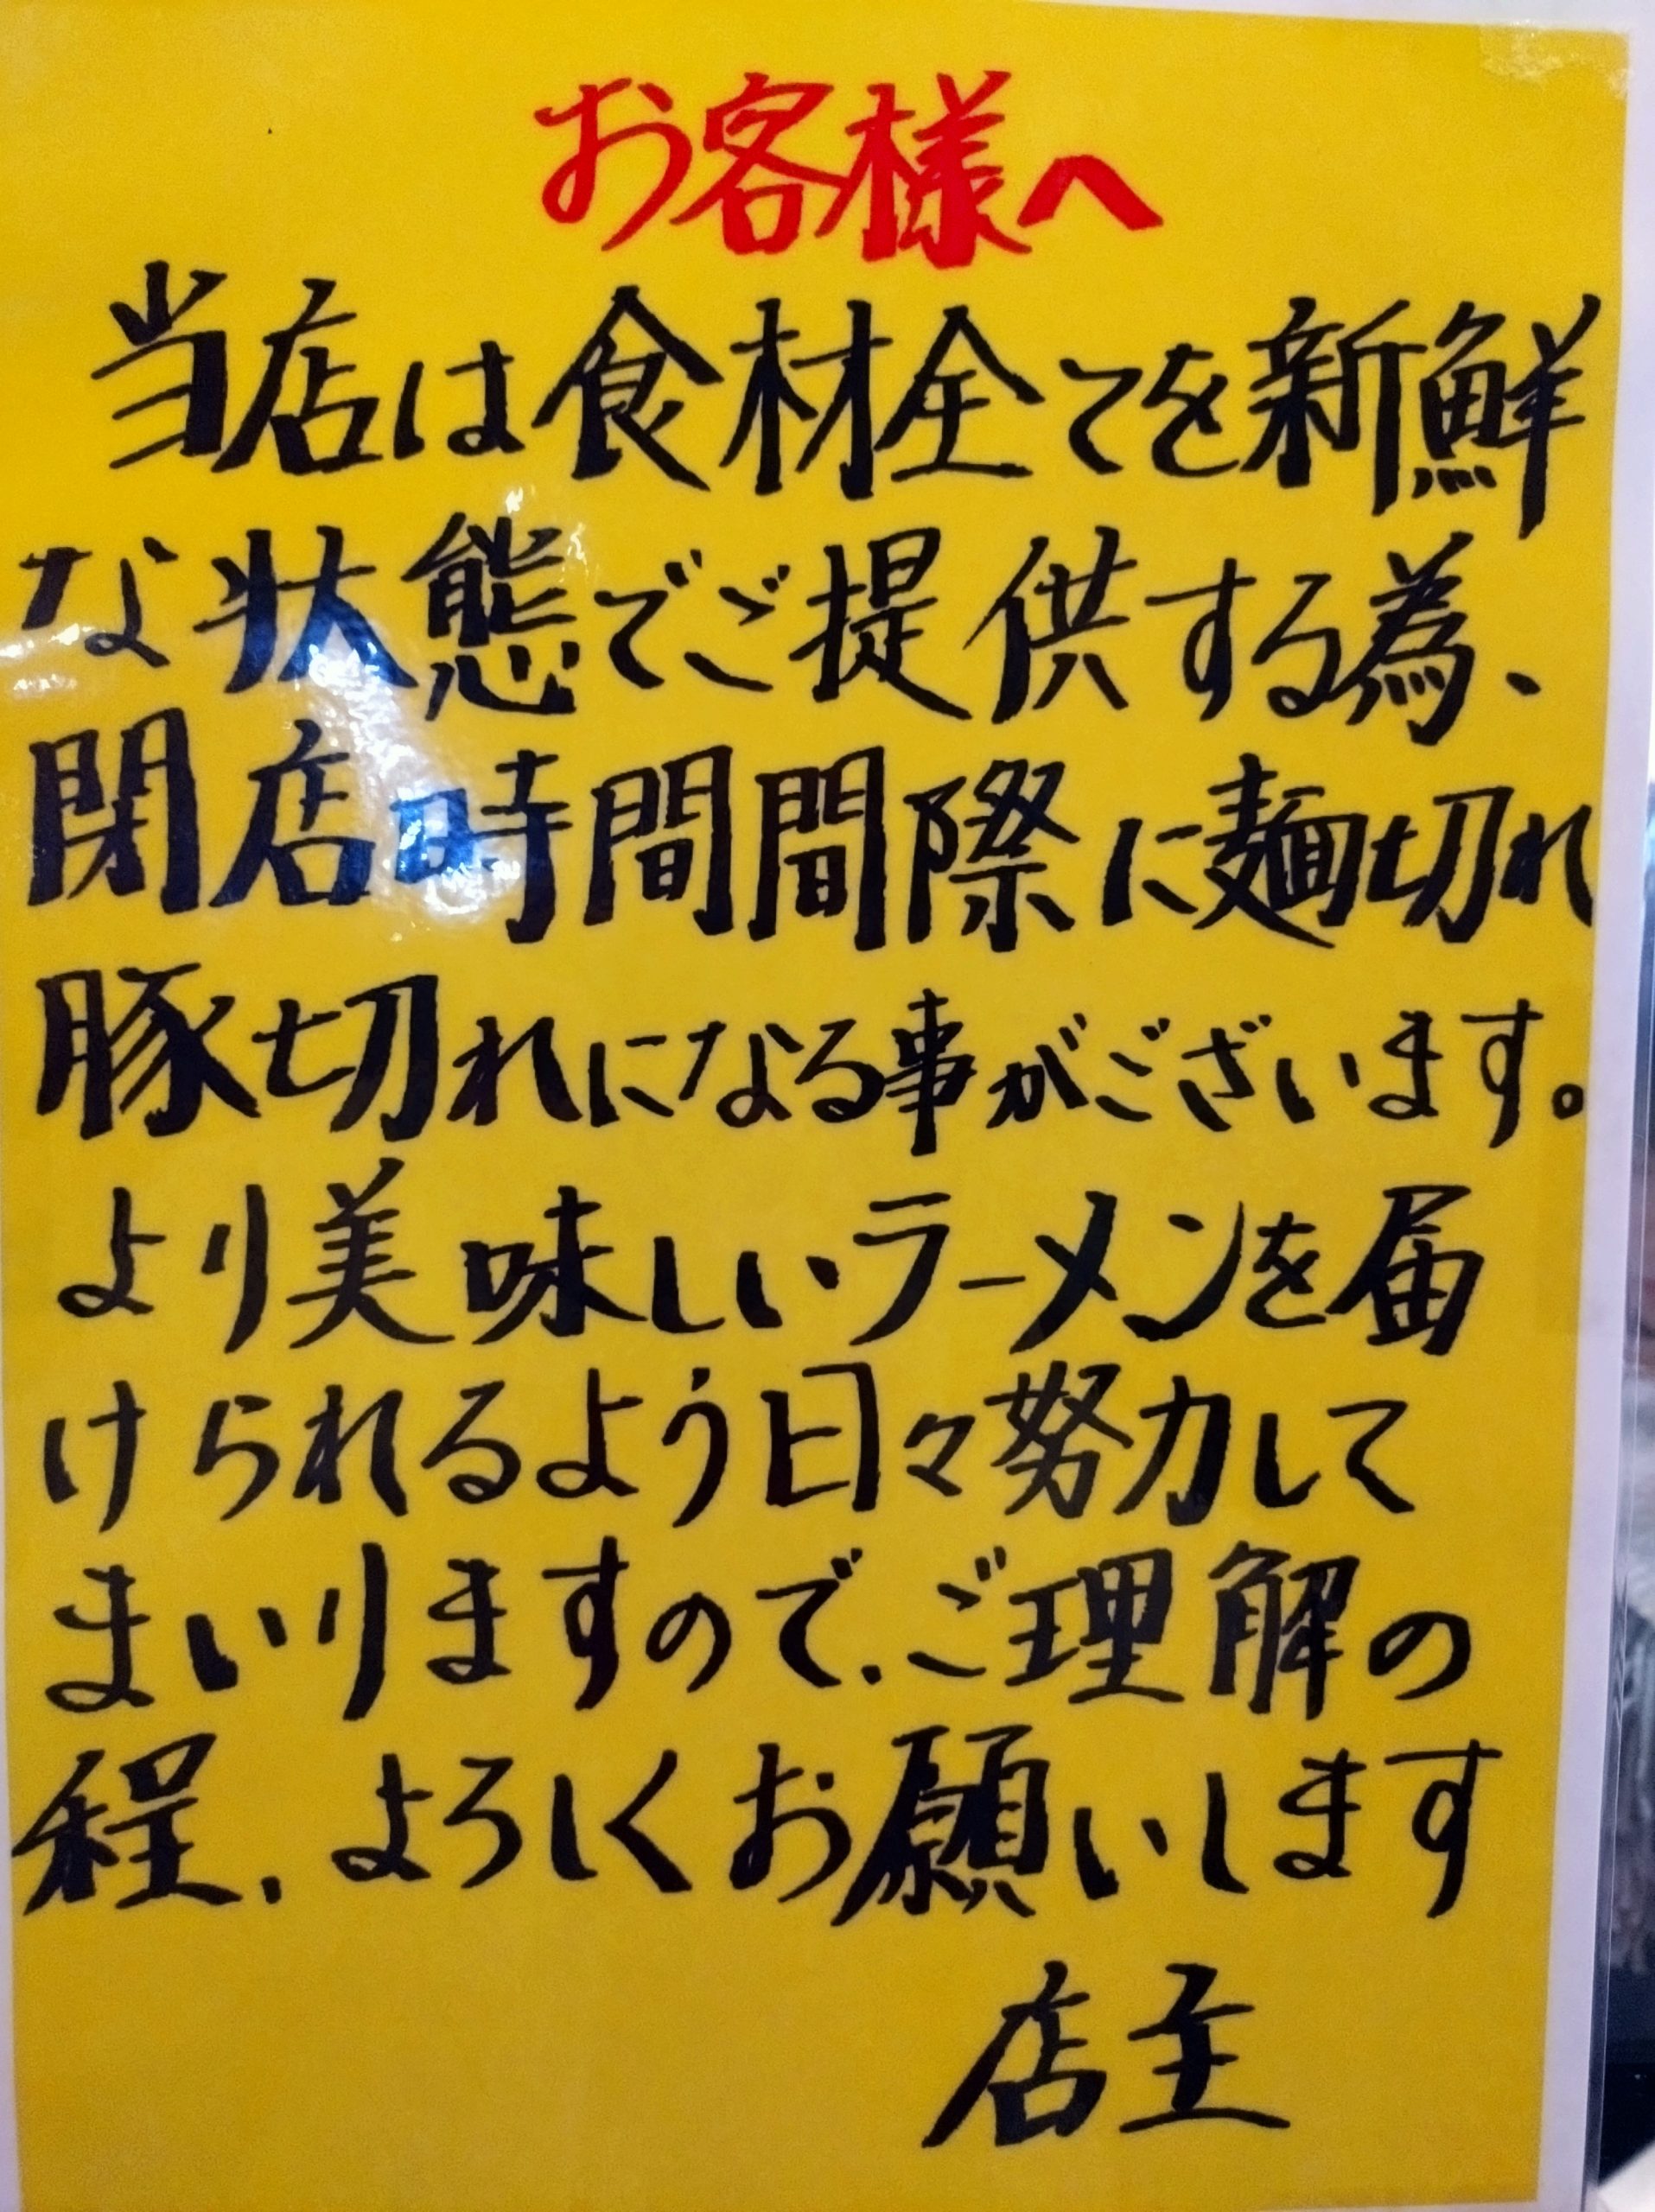 お客様へ
当店は食材全てを新鮮
な状態でご提供する為、
閉店時間間際に麺切れ
豚切れになる事がございます。
より美味しいラーメンを届
けられるよう日々努力して
まいりますので、ご理解の
程、よろしくお願いします
店主